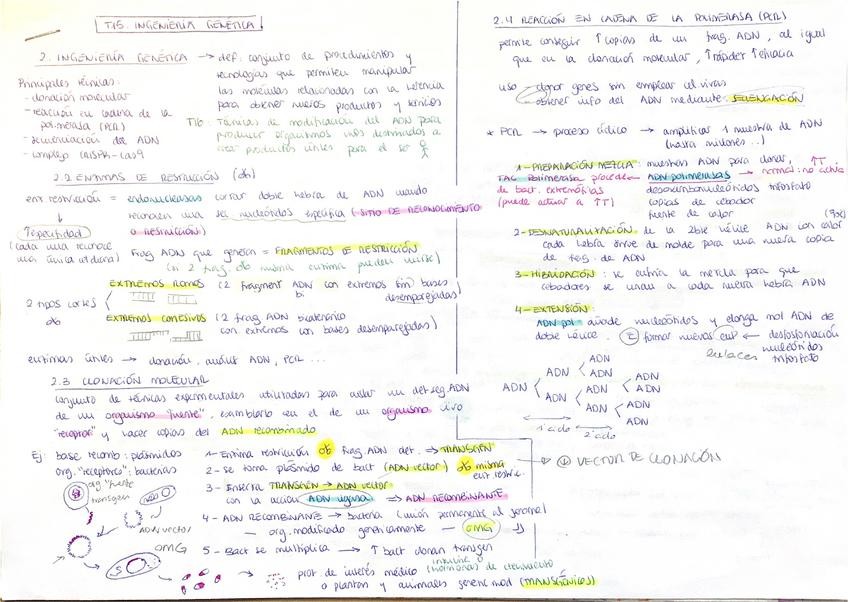 T15. INGENIERÍA GENÉTICA
2. INGENIERÍA GENÉTICA → def: conjunto de procedimientos y
tecnologías que permiten manipular
las moléculas relacionadas con la herencia
para obtener nuevos productos y
Principales técnicas:
- clonación molecular
- reacción en cadena de la
polimerasa (PCR)
- secuenciación del ADN
- complejo CRISPR-Cas9
T16: Técnicas de modificación del ADN para
producir organismos vivos destinados a
crear productos útiles para el ser
2.2 ENZIMAS DE RESTRICCIÓN
enz restricción = endonucleasas cortar doble hebra de ADN cuando
reconocen una sec nucleótidos específica (SITIO DE RECONOCIMIENTO
O RESTRICCIÓN)
↑especifidad
(cada una reconoce
una única
Frag ADN que generan = FRAGMENTOS DE RESTRICCIÓN
(si 2 frag. misma enzima pueden unirse)
2 tipos cortes
EXTREMOS ROMOS (2 fragment ADN con extremos sin bases
bi desemparejadas)
EXTREMOS COHESIVOS (2 frag ADN bicatenario
con extremos con bases desemparejadas)
enzimas útiles → clonación, análisis ADN, PCR ...
2.3 CLONACIÓN MOLECULAR
conjunto de técnicas experimentales utilizadas para aislar un det seg ADN
de un organismo "fuente", en el de un organismo vivo
"receptor" y hacer copias del ADN recombinado
Ej: base recomb: plásmidos
org. "receptores": bacterias
org "fuente
transgen
ADN vector
OMG
1- Enzima restricción frag. ADN det. → TRANSGÉN
2- se toma plásmido de bact (ADN vector) misma
enz restric.
→ VECTOR DE CLONACIÓN
3- Inserta TRANSGÉN → ADN vector
con la acción ADN ligasa ⇒ ADN RECOMBINANTE
4- ADN RECOMBINANTE → bacteria (unión permanente al genoma)
— org. modificado genéticamente — OMG
5- Bact se multiplica → ↑ bact clonan transgen
prot. de interés médico (insulina o hormonas de crecimiento
o plantas y animales genet mod (TRANSGÉNICOS)
2.4 REACCIÓN EN CADENA DE LA POLIMERASA (PCR)
permite conseguir ↑copias de un frag. ADN, al igual
que en la clonación molecular, ↑rapidez ↑eficacia
uso clonar genes sin emplear cel. vivas
obtener info del ADN mediante: SECUENCIACIÓN
* PCR → proceso cíclico → amplificar 1 muestra de ADN
(hasta millones ..)
1- PREPARACIÓN MEZCLA: muestras ADN para clonar, ↑T
TAQ Polimerasa procedes
de bact. extremófilas
(puede actuar a ↑T)
ADN polimerasas → normal: no actúa
desoxirribonucleótidos trifosfato
copias de cebador
fuente de calor
2- DESNATURALIZACIÓN de la doble hélice ADN con calor
cada hebra sirve de molde para una nueva copia
de frag. de ADN
3- HIBRIDACIÓN: se enfría la mezcla para que
cebadores se unan a cada nueva hebra ADN
4- EXTENSIÓN:
ADN pol añade nucleótidos y elonga mol ADN de
doble hélice. E formar nuevos enl ← desfosforilación
enlaces nucleótidos
trifosfato
ADN
ADN ADN
ADN ADN
ADN ADN
ADN ADN
ADN
ADN
ADN
ADN
1º ciclo 2º ciclo